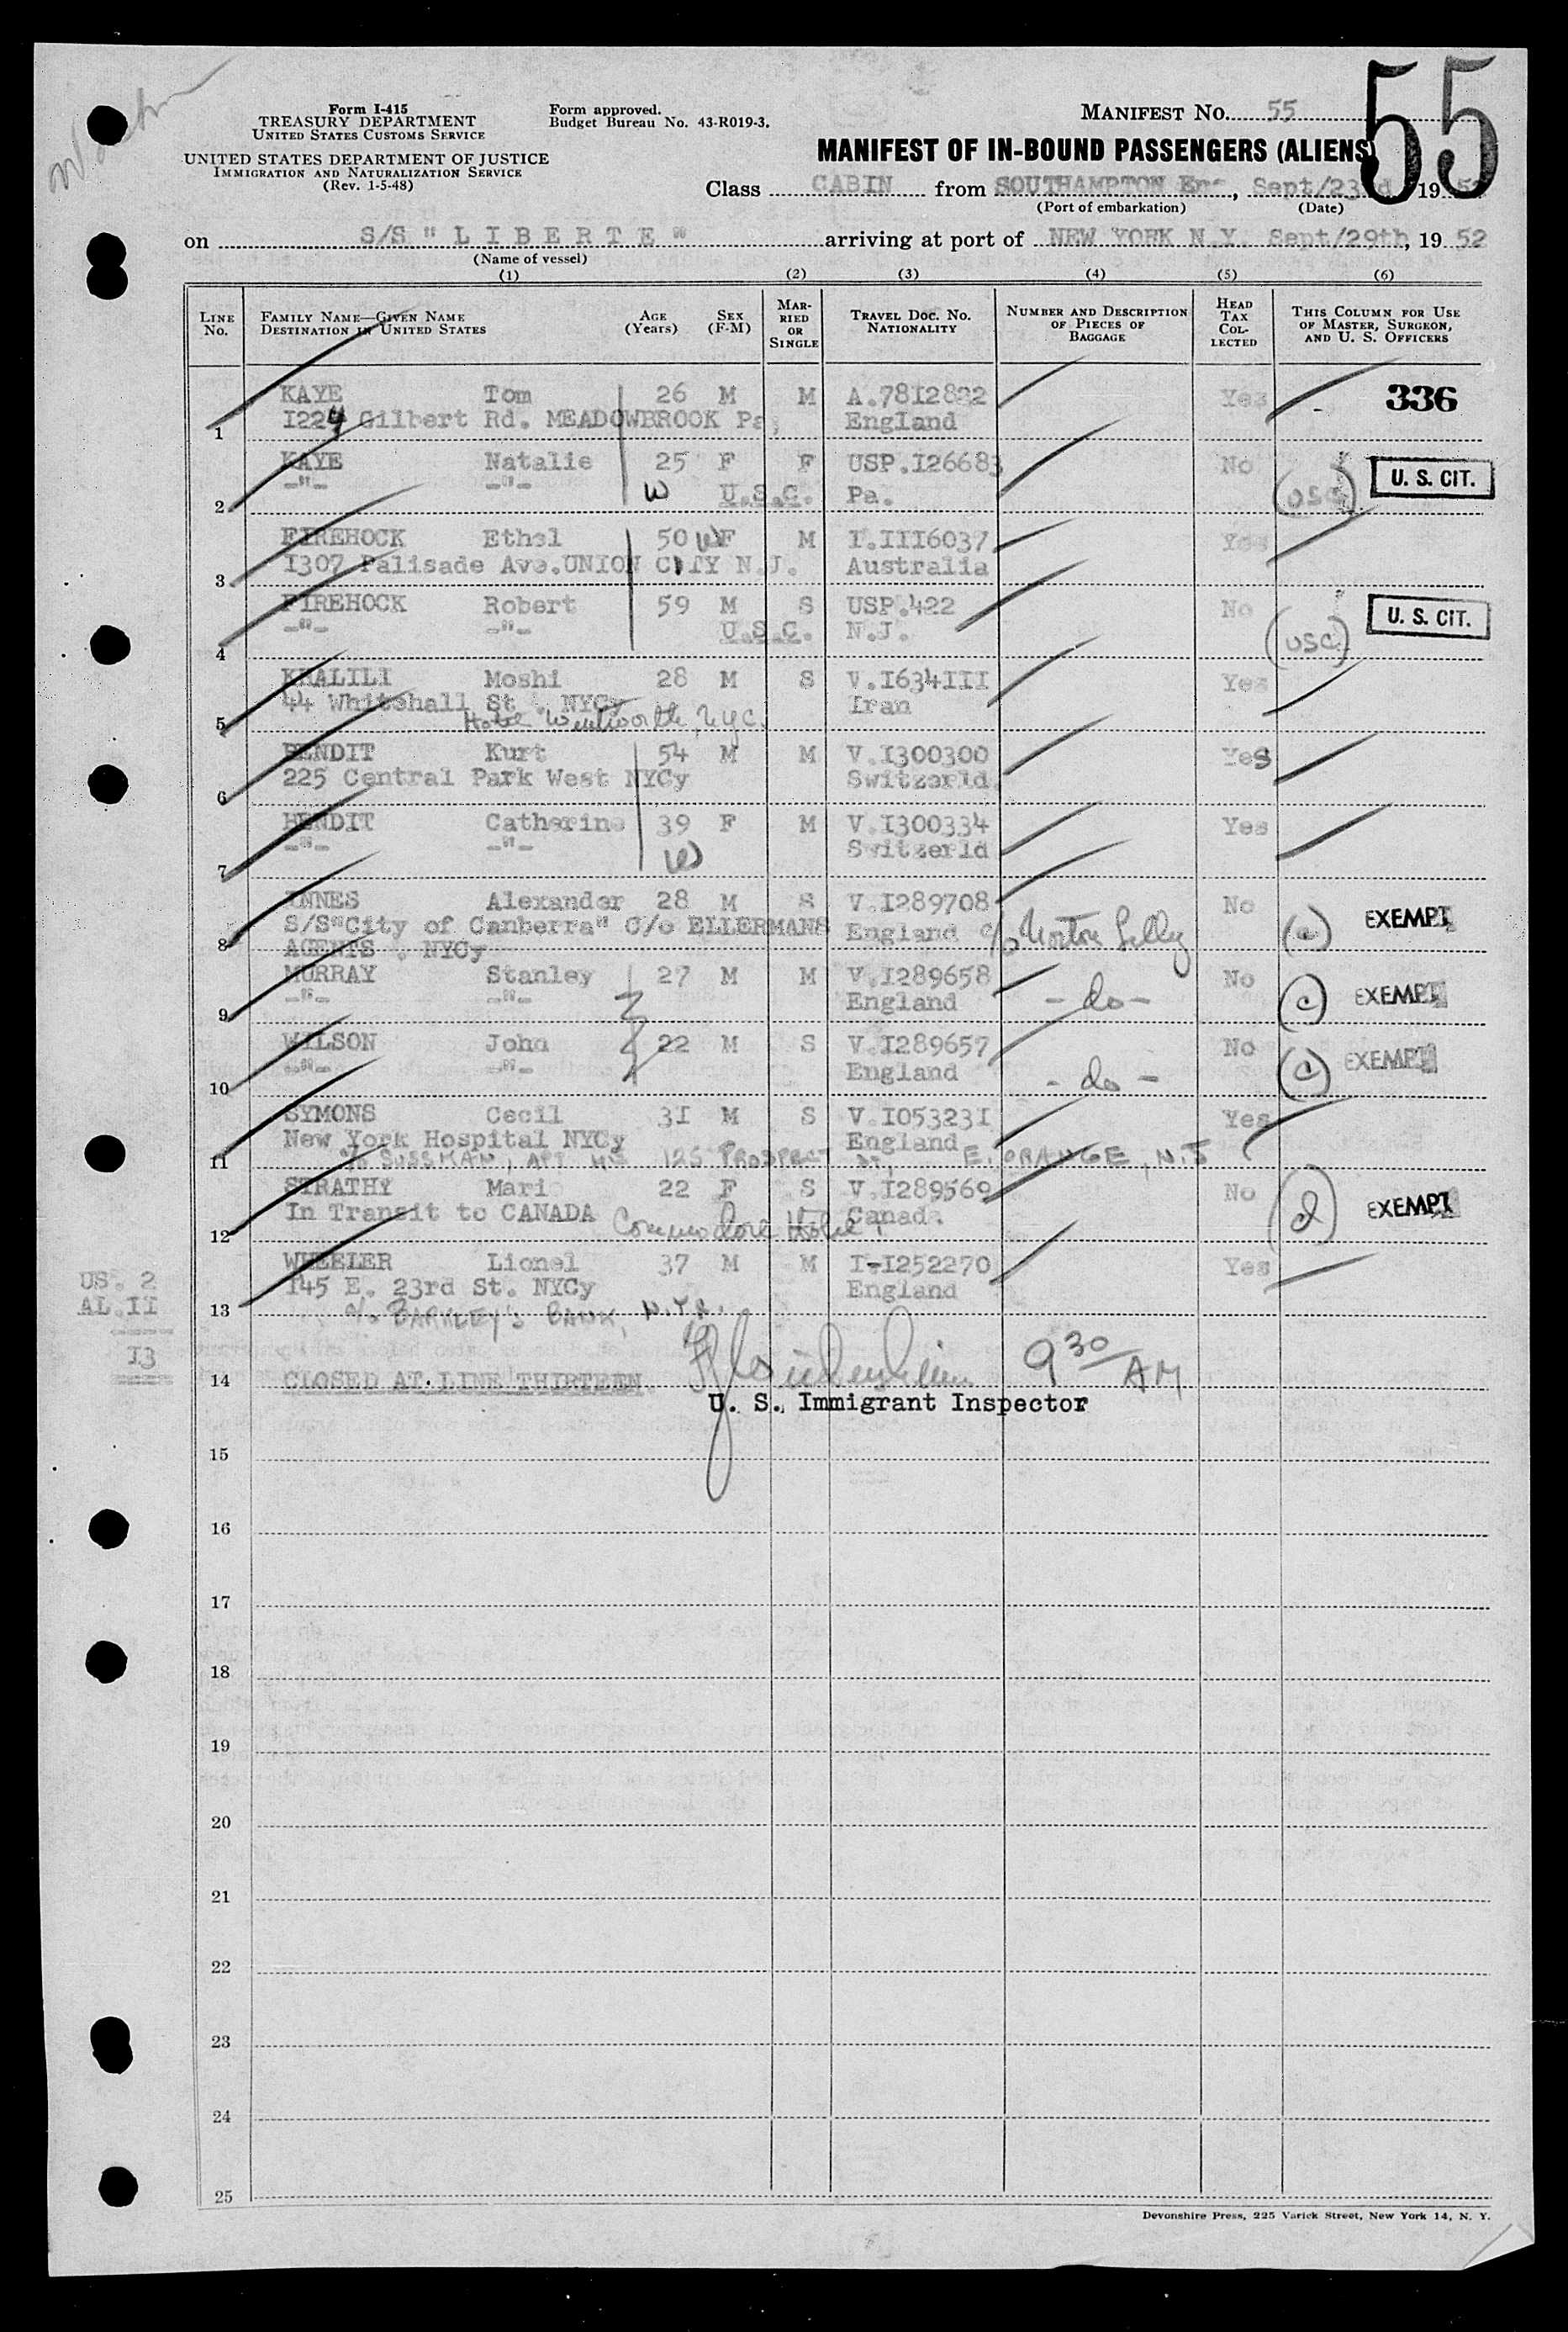 55
Form I-415
TREASURY DEPARTMENT
UNITED STATES CUSTOMS SERVICE
UNITED STATES DEPARTMENT OF JUSTICE
IMMIGRATION AND NATURALIZATION SERVICE
(Rev. 1-5-48)
Form approved.
Budget Bureau No. 43-R019-3.
MANIFEST NO. 55
MANIFEST OF IN-BOUND PASSENGERS (ALIENS)
Class CABIN from SOUTHAMPTON , Sept/23rd 19
(Port of embarkation) (Date)
on S/S " L I B E R T E " arriving at port of NEW YORK N.Y. Sept/29th, 19 52
(Name of vessel)
(1) (2) (3) (4) (5) (6)
LINE No. FAMILY NAME—GIVEN NAME DESTINATION IN UNITED STATES AGE (Years) SEX (F-M) MARRIED OR SINGLE TRAVEL DOC. NO. NATIONALITY NUMBER AND DESCRIPTION OF PIECES OF BAGGAGE HEAD TAX COLLECTED THIS COLUMN FOR USE OF MASTER, SURGEON, AND U. S. OFFICERS
KAYE Tom 26 M M A.7812822 Yes - 336
1 1224 Gilbert Rd. MEADOWBROOK Pa, England
KAYE Natalie 25 F F USP.I26683 No U. S. CIT.
2 -"- -"- W U.S.C. Pa. (USC)
FIREHOCK Ethel 50 W F M I.III6037 Yes
3 1307 Palisade Ave.UNION CITY N.J. Australia
FIREHOCK Robert 59 M S USP.422 No U. S. CIT.
4 -"- -"- U.S.C. N.J. (USC)
KHALILI Moshi 28 M S V.I634III Yes
44 Whitehall St . NYCy Iran
5 Hotel Wentworth, N.Y.C.
BENDIT Kurt 54 M M V.I300300 Yes
6 225 Central Park West NYCy Switzerld.
BENDIT Catherine 39 F M V.I300334 Yes
7 -"- -"- W Switzerld
INNES Alexander 28 M S V.I289708 No EXEMPT
8 S/S"City of Canberra" C/o ELLERMANS England c/o Norton Lilly
AGENTS . NYCy
MURRAY Stanley 27 M M V.I289658 No (c) EXEMPT
9 -"- -"- England -do-
WILSON John 22 M S V.I289657 No EXEMPT
10 -"- -"- England -do-
SYMONS Cecil 3I M S V.I05323I Yes
New York Hospital NYCy England
11 c/o SUSSMAN, APT 125 PROSPECT ST, E. ORANGE, N.J
STRATHY Mari 22 F S V.I289569 No (d) EXEMPT
12 In Transit to CANADA Commodore Hotel Canada.
WHEELER Lionel 37 M M I-I252270 Yes
145 E. 23rd St. NYCy England
13 c/o BARKLEY'S BANK, N.Y.C.
US. 2
AL.II
I3
14 CLOSED AT LINE THIRTEEN 9 30 AM
U. S. Immigrant Inspector
15
16
17
18
19
20
21
22
23
24
25
Devonshire Press, 225 Varick Street, New York 14, N. Y.